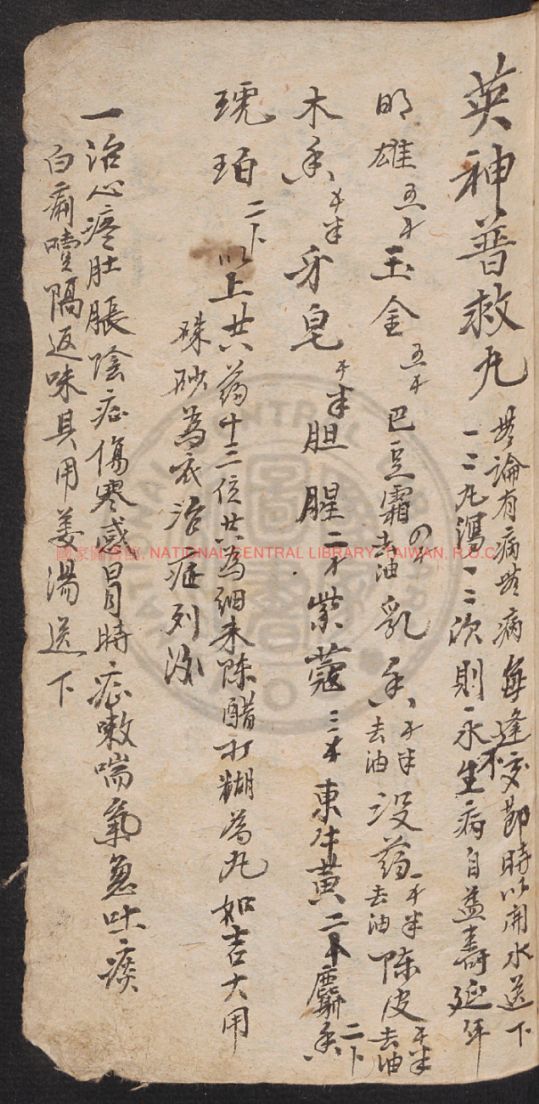 英神普救丸 無論有病無病每逢交節時以開水送下
一二丸瀉一二次則永不生病自益壽延年
明雄五千 玉金五千 巴豆霜四千去油 乳香千半去油 没药千半去油 陈皮千半去油
木香千半 牙皂千半 胆腥二千 紫蔻三千 東牛黄二卜 麝香二卜
琥珀二卜 以上共药十二位共為細末陈醋打糊為丸如吉大用
硃砂為衣治症列後
一治心疼肚脹陰症傷寒感冒時症嗽喘氣急吐痰
白痢噎隔返味具用姜湯送下
國家圖書館, NATIONAL CENTRAL LIBRARY, TAIWAN, R.O.C.